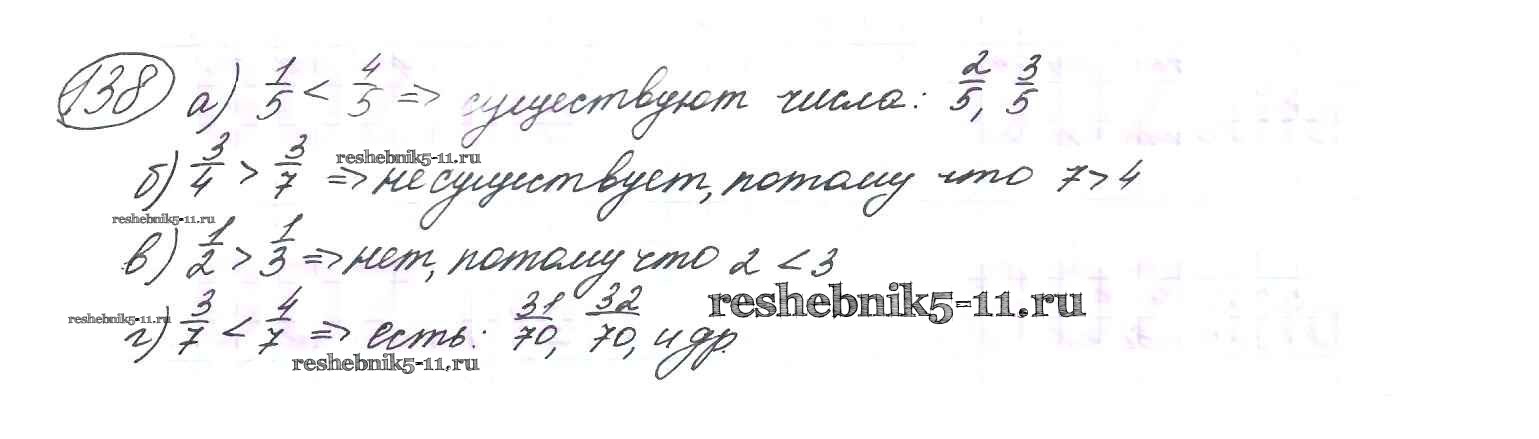 138 а) 1/5 < 4/5 => существуют числа: 2/5, 3/5
reshebnik5-11.ru
б) 3/4 > 3/7 => не существует, потому что 7 > 4
reshebnik5-11.ru
в) 1/2 > 1/3 => нет, потому что 2 < 3
reshebnik5-11.ru
reshebnik5-11.ru
г) 3/7 < 4/7 => есть: 31/70, 32/70, и др.
reshebnik5-11.ru